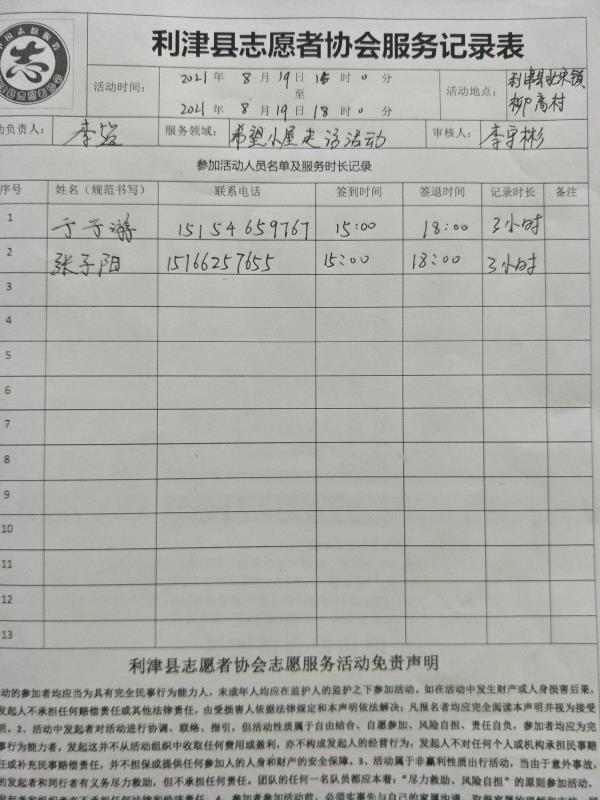 利津县志愿者协会服务记录表
志
活动时间：
2021年 8月19日15时0分
至
2021年 8月19日18时0分
活动地点：
利津县北宋镇
柳高村
动负责人：
李岩
服务领域：
希望小屋走访活动
审核人：
李守彬
参加活动人员名单及服务时长记录
序号 姓名（规范书写） 联系电话 签到时间 签退时间 记录时长 备注
1 于子游 15154659767 15:00 18:00 3小时
2 张子阳 15166257655 15:00 18:00 3小时
3
4
5
6
7
8
9
10
11
12
13
利津县志愿者协会志愿服务活动免责声明
动的参加者均应当为具有完全民事行为能力人，未成年人均应在监护人的监护之下参加活动。如在活动中发生财产或人身损害后果，
发起人不承担任何赔偿责任或其他法律责任，由受损害人依据法律规定和本声明依法解决；凡报名者均应完全阅读本声明并视为接受
明。2、活动中发起者对活动进行协调、联络、指引，但活动性质属于自由结合、自愿参加、风险自担、责任自负，参加者均应为完
事行为能力者，发起这并不从活动组织中收取任何费用或盈利，亦不构成发起人的经营行为，发起人不对任何个人或机构承担民事赔
任或补充民事赔偿责任，并不担保或提供任何参加人的人身和财产的安全保障。3、活动属于非赢利性质出行活动，当由于意外事故，
的发起者和同行者有义务尽力救助，但不承担任何责任。团队的任何一名队员都应本着："尽力救助、风险自担"的原则参加活动，
4、参加者参加活动前，必须实事先与自己的家属沟通，取得家属的